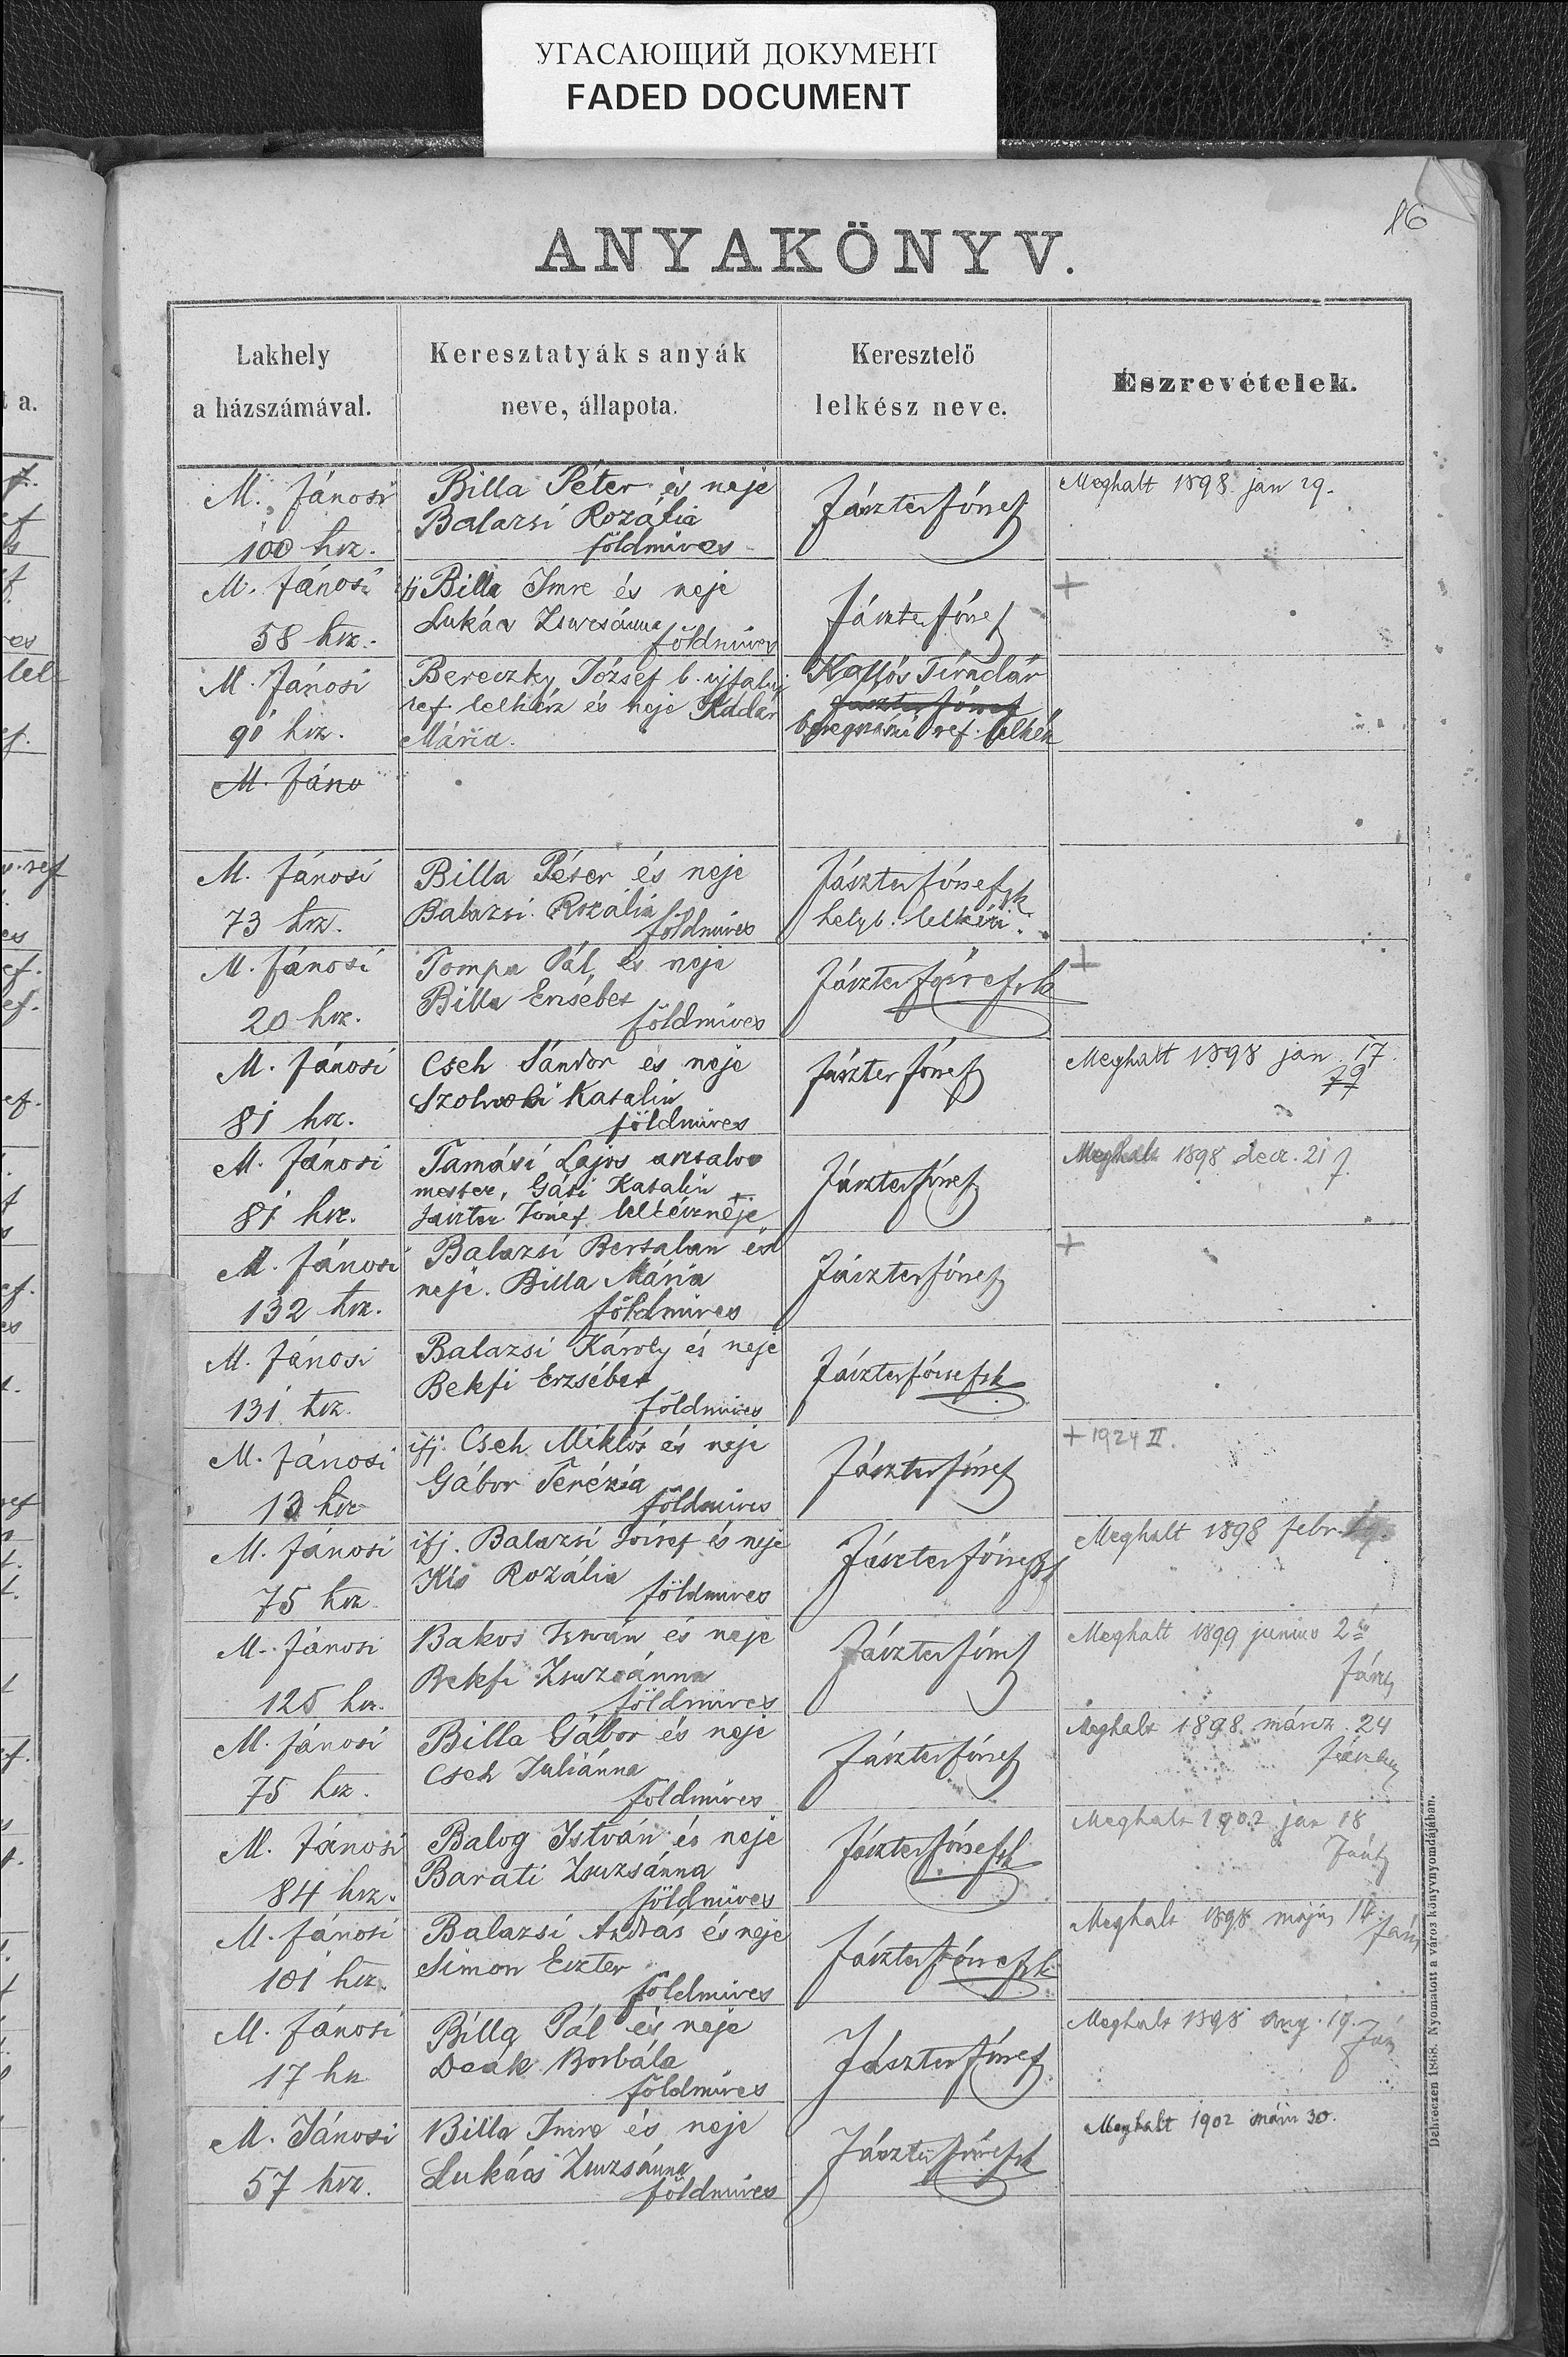 УГАСАЮЩИЙ ДОКУМЕНТ
FADED DOCUMENT
16
ANYAKÖNYV.
Lakhely
a házszámával.
Keresztatyák s anyák
neve, állapota.
Keresztelö
lelkész neve.
Észrevételek.
M. Jánosi
100 hsz.
Billa Péter és neje
Balazsi Rozália
földmives
Jászter József
Meghalt 1898 jan 19.
M. Jánosi
58 hsz.
ifj Billa Imre és neje
Lukács Zsuzsánna
földmives
Jászter József
+
M. Jánosi
90 hsz.
Bereczky József b. ujfalui
ref lelkész és neje Kádár
Mária.
Jászter József
beregszászi ref. lelkész
M. Jáno
M. Jánosi
73 hsz.
Billa Péter és neje
Balazsi Rozália
földmives
Jászter József sk.
helyb. lelkész.
M. Jánosi
20 hsz.
Tompa Pál és neje
Billa Ersébet
földmives
Jászter József sk
+
M. Jánosi
81 hsz.
Cseh Sándor és neje
Katalin
földmives
Jászter József
Meghalt 1898 jan 17.
M. Jánosi
81 hsz.
Tamási Lajos asztalos
mester, Gáti Katalin
Jászter József lelkész neje
Jászter József
Meghalt 1898 dec. 21
M. Jánosi
132 hsz.
Balazsi Bertalan és
neje. Billa Mária
földmives
Jászter József
+
M. Jánosi
131 hsz.
Balazsi Károly és neje
Bekfi Erzsébet
földmives
Jászter József sk
M. Jánosi
13 hsz
ifj. Cseh Miklós és neje
Gábor Terézia
földmives
Jászter József
+ 1924 II.
M. Jánosi
75 hsz
ifj. Balazsi József és neje
Kis Rozália
földmives
Jászter József
Meghalt 1898 febr.
M. Jánosi
125 hsz.
Bakos István és neje
Bekfi Zsuzsánna
földmives
Jászter József
Meghalt 1899 junius 2
M. Jánosi
75 hsz.
Billa Gábor és neje
Cseh Juliánna
földmives
Jászter József
Meghalt 1898. márcz. 24
M. Jánosi
84 hsz.
Balog István és neje
Barati Zsuzsánna
földmives
Jászter József sk
Meghalt 1902 jan 18
M. Jánosi
101 hsz.
Balazsi András és neje
Simon Eszter
földmives
Jászter József sk
Meghalt 1898 május
M. Jánosi
17 hsz
Billa Pál és neje
Deák Borbála
földmives
Jászter József
Meghalt 1898 aug. 19.
M. Jánosi
57 hsz.
Billa Imre és neje
Lukács Zsuzsánna
földmives
Jászter József sk
Meghalt 1902 30.
Debreczen 1868. Nyomatott a város könyvnyomdájában.